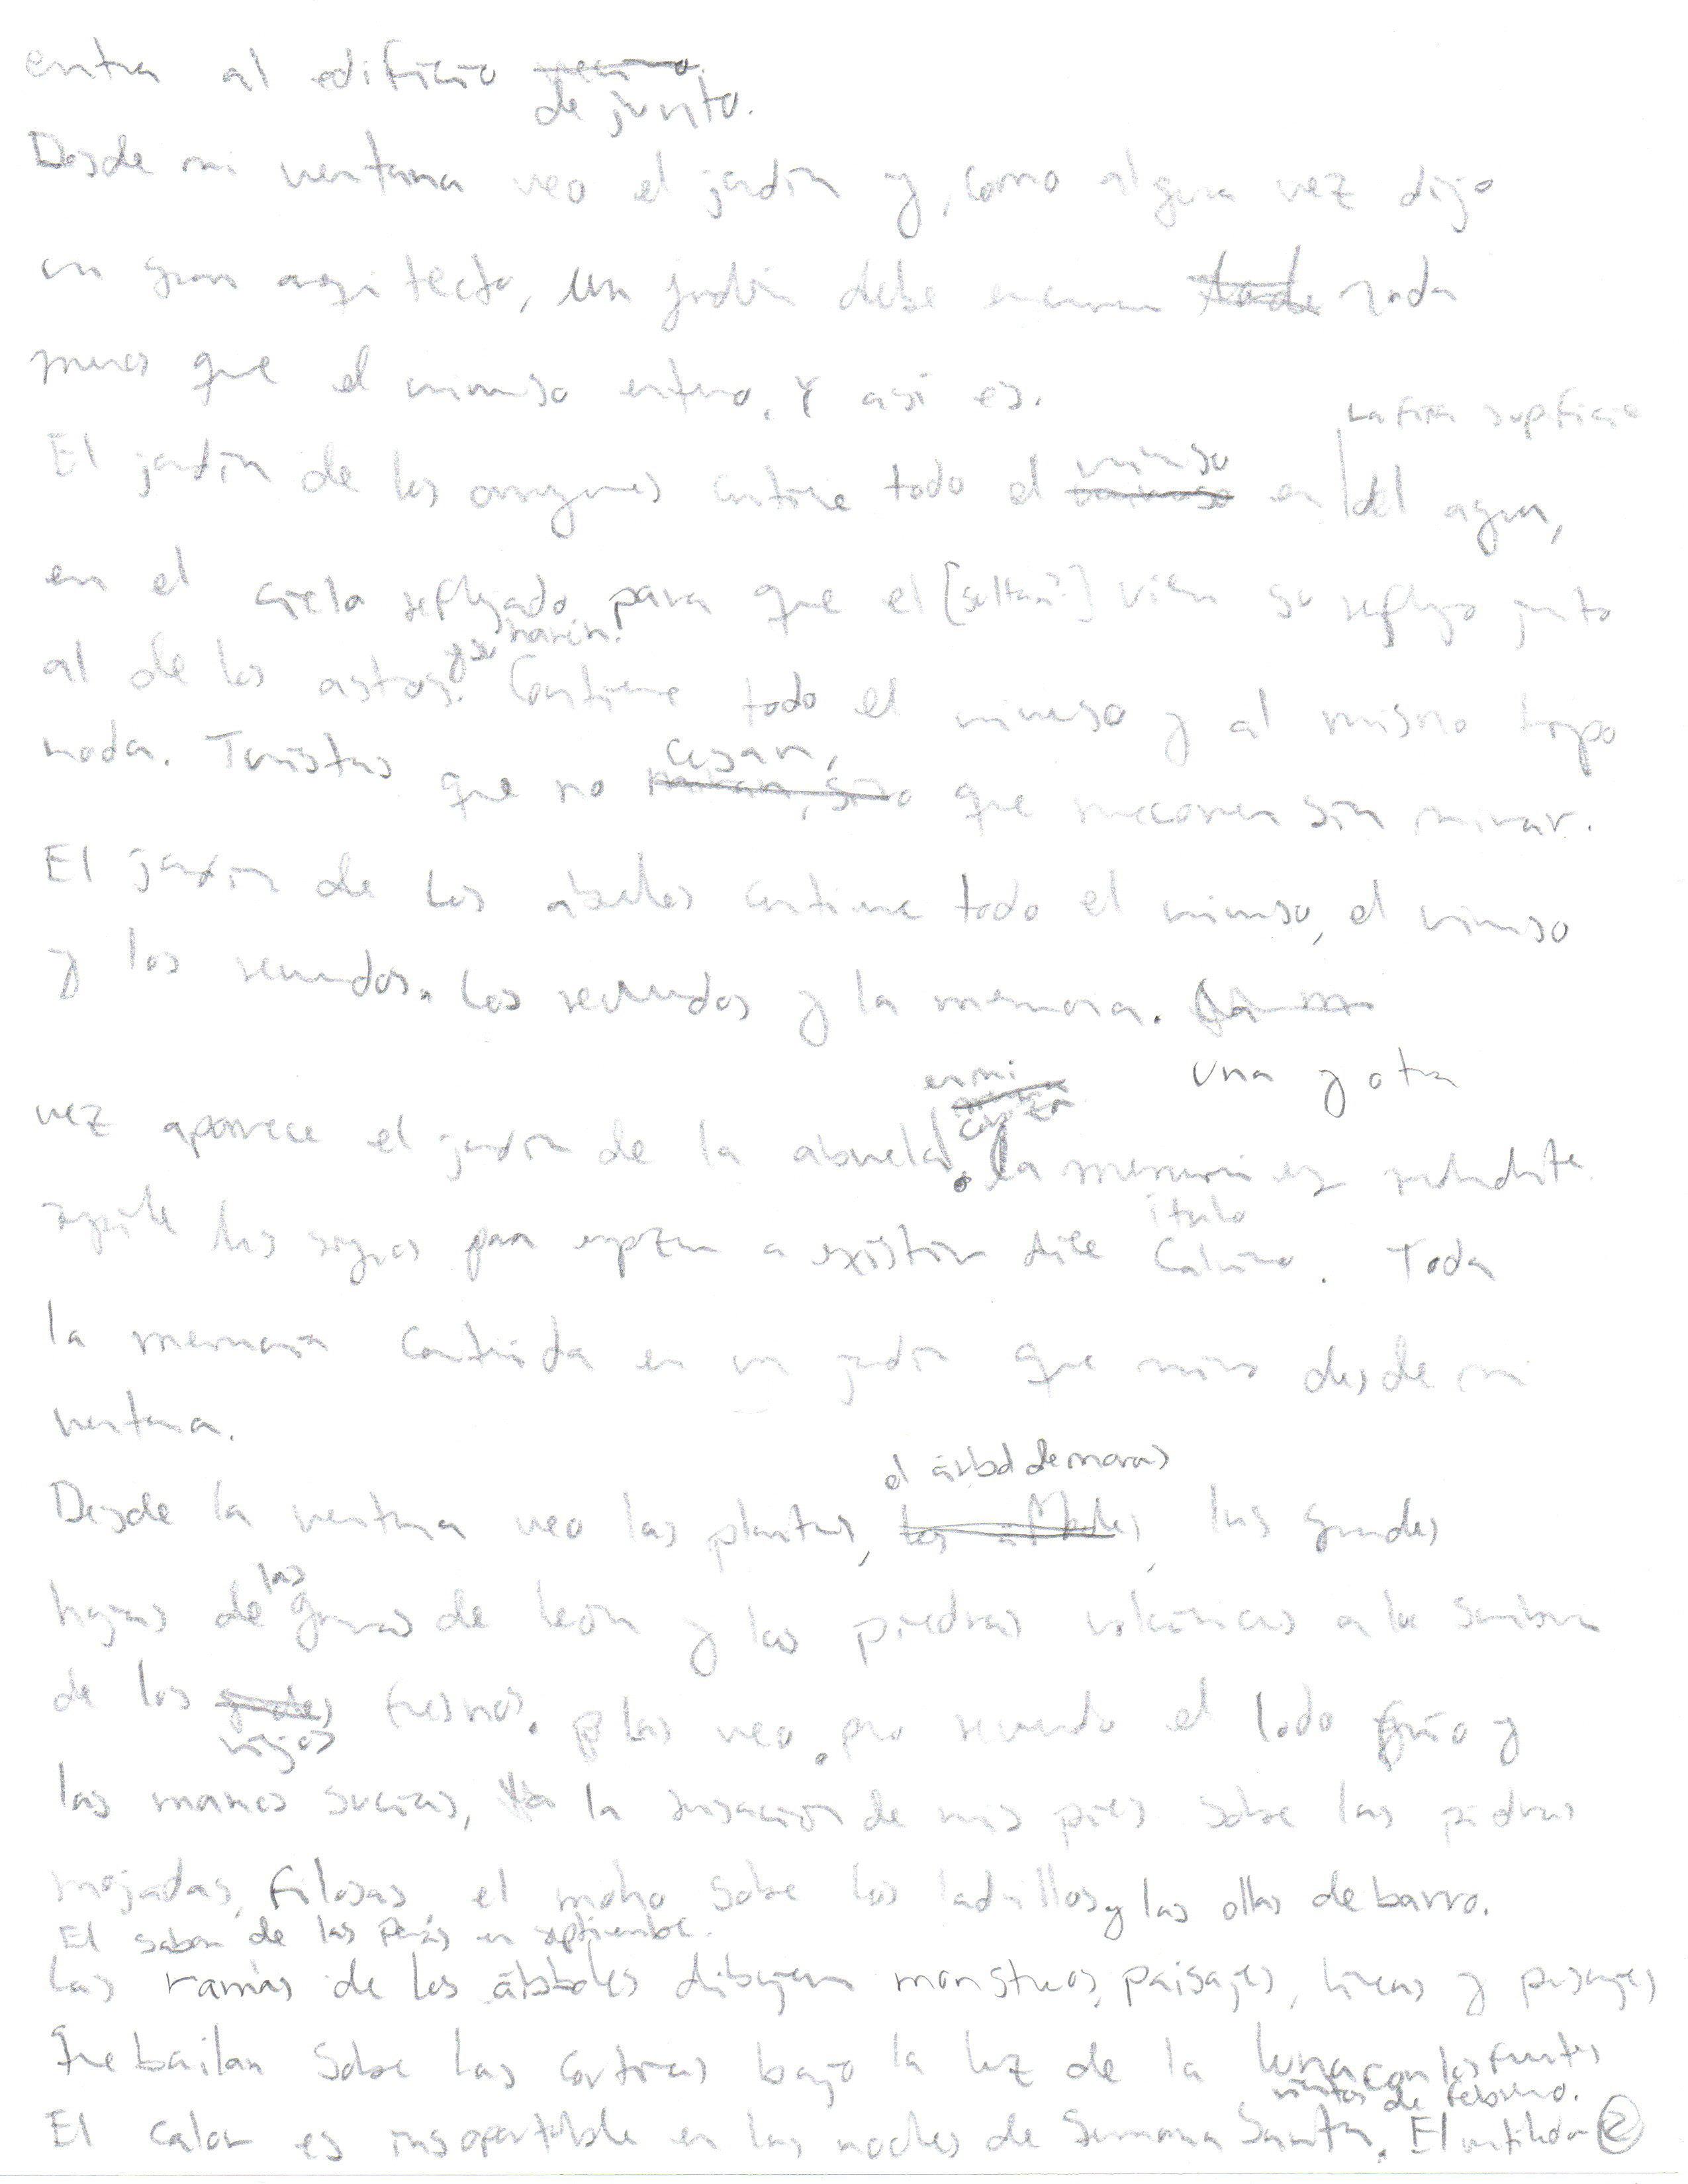 entra al edificio vecino.
de junto.
Desde mi ventana veo el jardín y, como alguna vez dijo
un gran arquitecto, un jardín debe encerrar nada
menos que el universo entero. Y así es.
la fría superficie
El jardín de los contiene todo el universo en del agua,
en el cielo reflejado para que el [sultan?] viera su reflejo junto
y su harén.
al de los astros. Contiene todo el universo y al mismo tiempo
nada. Turistas que no cesan, que recorren sin mirar.
El jardín de los abuelos contiene todo el universo, el universo
y los recuerdos. Los recuerdos y la memoria.
en mi cabeza Una y otra
vez aparece el jardín de la abuela. la memoria es redundante
repite los signos para empezar a existir dice Italo Calvino. Toda
la memoria contenida en un jardín que miro desde mi
ventana.
el árbol de moras
Desde la ventana veo las plantas, los árboles, las grandes
hojas de las garras de león y las piedras volcánicas a la sombra
de los viejos fresnos. Las veo. pro recuerdo el lodo frío y
las manos sucias, la sensación de mis pies sobre las piedras
mojadas, filosas, el moho sobre los ladrillos y las ollas de barro.
El sabor de las peras en septiembre.
Las ramas de los árboles dibujan monstruos, paisajes, líneas y pasajes
que bailan sobre las cortinas bajo la luz de la luna con los fuertes
vientos de febrero.
El calor es insoportable en las noches de Semana Santa. El ventilador 2